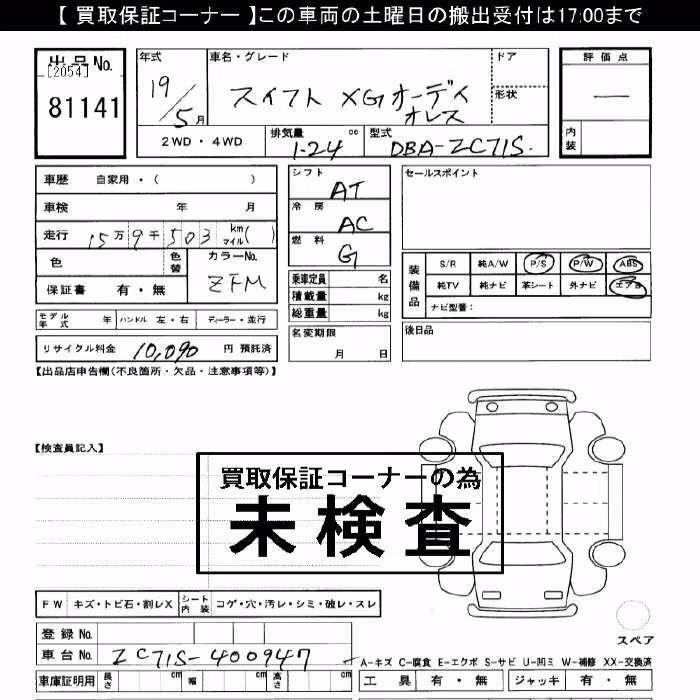 【 買取保証コーナー 】この車両の土曜日の搬出受付は17:00まで
出品No.
[2054]
81141
年式
19/5月
車名・グレード
スイフト XGオーディオレス
ドア
形状
評価点
―
内装
2WD・4WD
排気量 cc
1-24
型式
DBA-ZC71S.
車歴 自家用・( )
車検 年 月
走行 15万9千503 km マイル( )
色 色替
カラーNo.
ZFM
保証書 有・無
シフト
AT
冷房
AC
燃料
G
乗車定員 名
積載量 kg
総重量 kg
名変期限
月 日
セールスポイント
装備品
S/R 純A/W P/S P/W ABS
純TV 純ナビ 革シート 外ナビ エアB
ナビ型番:
後日品
モデル年式 年 ハンドル 左・右 ディーラー・並行
リサイクル料金 10,090 円 預託済
【出品店申告欄(不良箇所・欠品・注意事項等)】
【検査員記入】
買取保証コーナーの為
未検査
FW キズ・トビ石・割レX シート内装 コゲ・穴・汚レ・シミ・破レ・スレ
登録No.
車台No. ZC71S-400947
車庫証明用 長さ cm 幅 cm 高さ cm
スペア
A-キズ C-腐食 E-エクボ S-サビ U-凹ミ W-補修 XX-交換済
工具 有・無 ジャッキ 有・無